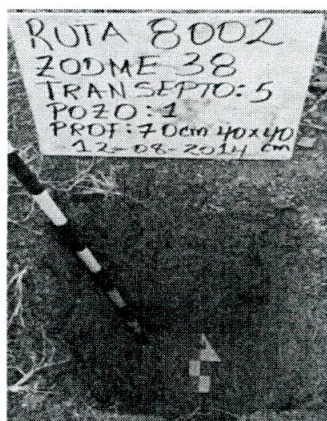 RUTA 8002
ZODME 38
TRANSEPTO: 5
POZO: 1
PROF: 70cm 40x40
-12-08-2014 cm